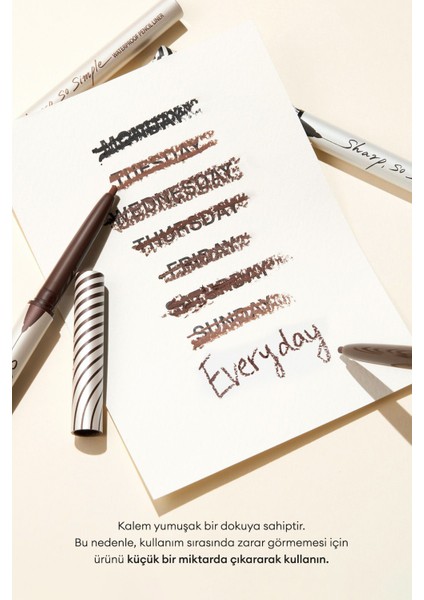 So Simple
WATERPROOF PENCIL LINER
Sharp, so
MONDAY
TUESDAY
WEDNESDAY
THURSDAY
FRIDAY
SATURDAY
SUNDAY
Everyday
Kalem yumuşak bir dokuya sahiptir.
Bu nedenle, kullanım sırasında zarar görmemesi için
ürünü küçük bir miktarda çıkararak kullanın.